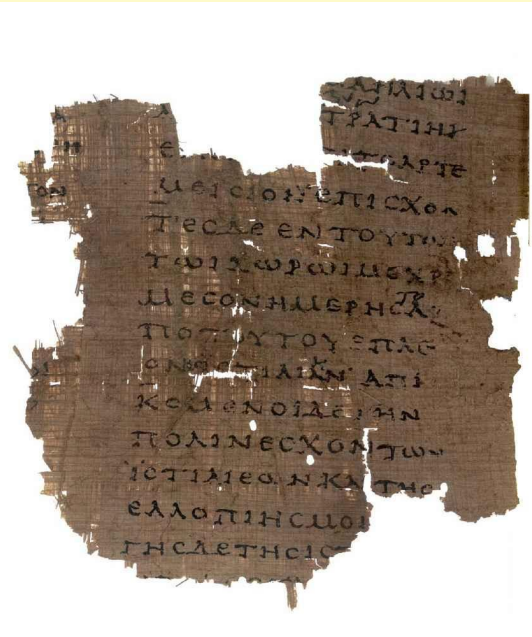 ΗΛΙΩΙ
ΤΡΑΤΙΗ
ΑΡΤΕ
ΜΕΙϹΙΟΝΕΠΙϹΧΟΝ
ΤΕϹΔΕ ΕΝ ΤΟΥΤΩ
ΤΩΙΧΩΡΩΙΜΕΧΡ
ΜΕϹΟΝΗΜΕΡΗϹΑ
ΠΟΤΟΥΤΟΥ ΕΠΛΕ
ΤΙΑΙΑΝ ΑΠΙ
ΚΟΜΕΝΟΙΔΕΤΗΝ
ΠΟΛΙΝΕϹΧΟΝΤΩΝ
ΙϹΤΙΑΙΕΩΝΚΑΙΤΗϹ
ΕΛΛΟΠΙΗϹΜΟΙ
ΓΗϹΔΕΤΗϹΙϹ